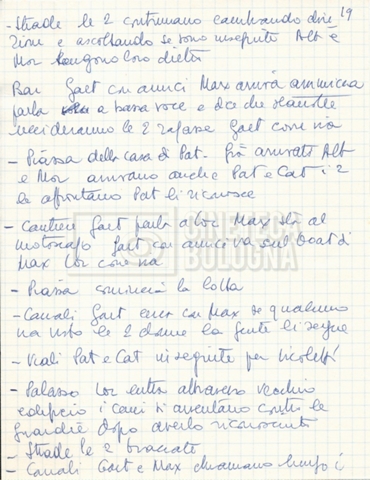 19
- Strade le 2 continuano cambiando dire
zione e ascoltando se sono inseguite Alb e
Mor tengono loro dietro
Bar Gaet con amici Max arriva ammicca
parla a bassa voce e dice che stanotte
uccideranno le 2 ragazze Gaet corre via
- Piazza della casa di Pat - Già arrivati Alb
e Mor arrivano anche Pat e Cat i 2
le affrontano Pat li riconosce
- Cantieri Gaet parla a Lor Max sta al
motoscafo Gaet con amici va sul boat di
Max Lor corre via
- Piazza comincia la lotta
- Canali Gaet cerca con Max se qualcuno
ha visto le 2 donne la gente li segue
- Viali Pat e Cat inseguite per vicoletti
- Palazzo Lor entra attraverso vecchio
edificio i cani si avventano contro le
guardie dopo averlo riconosciuto
- Strade le 2 braccate
- Canali Gaet e Max chiamano lungo i
CINETECA
BOLOGNA